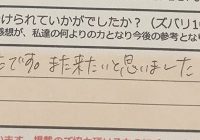 けられていかがでしたか？（ズバリ10
感想が、私達の何よりの力となり今後の参考となり
です。また来たいと思いました